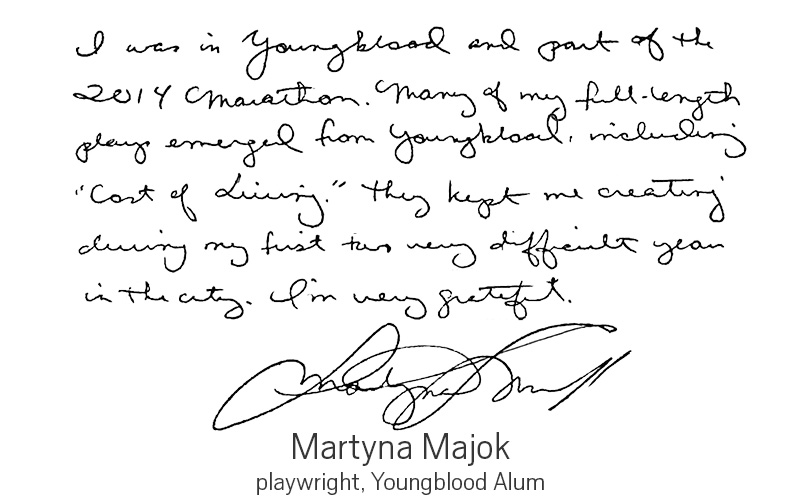 I was in Youngblood and part of the
2014 Marathon. Many of my full-length
plays emerged from Youngblood, including
"Cost of Living." They kept me creating
during my first two very difficult years
in the city. I'm very grateful.
Martyna Majok
playwright, Youngblood Alum